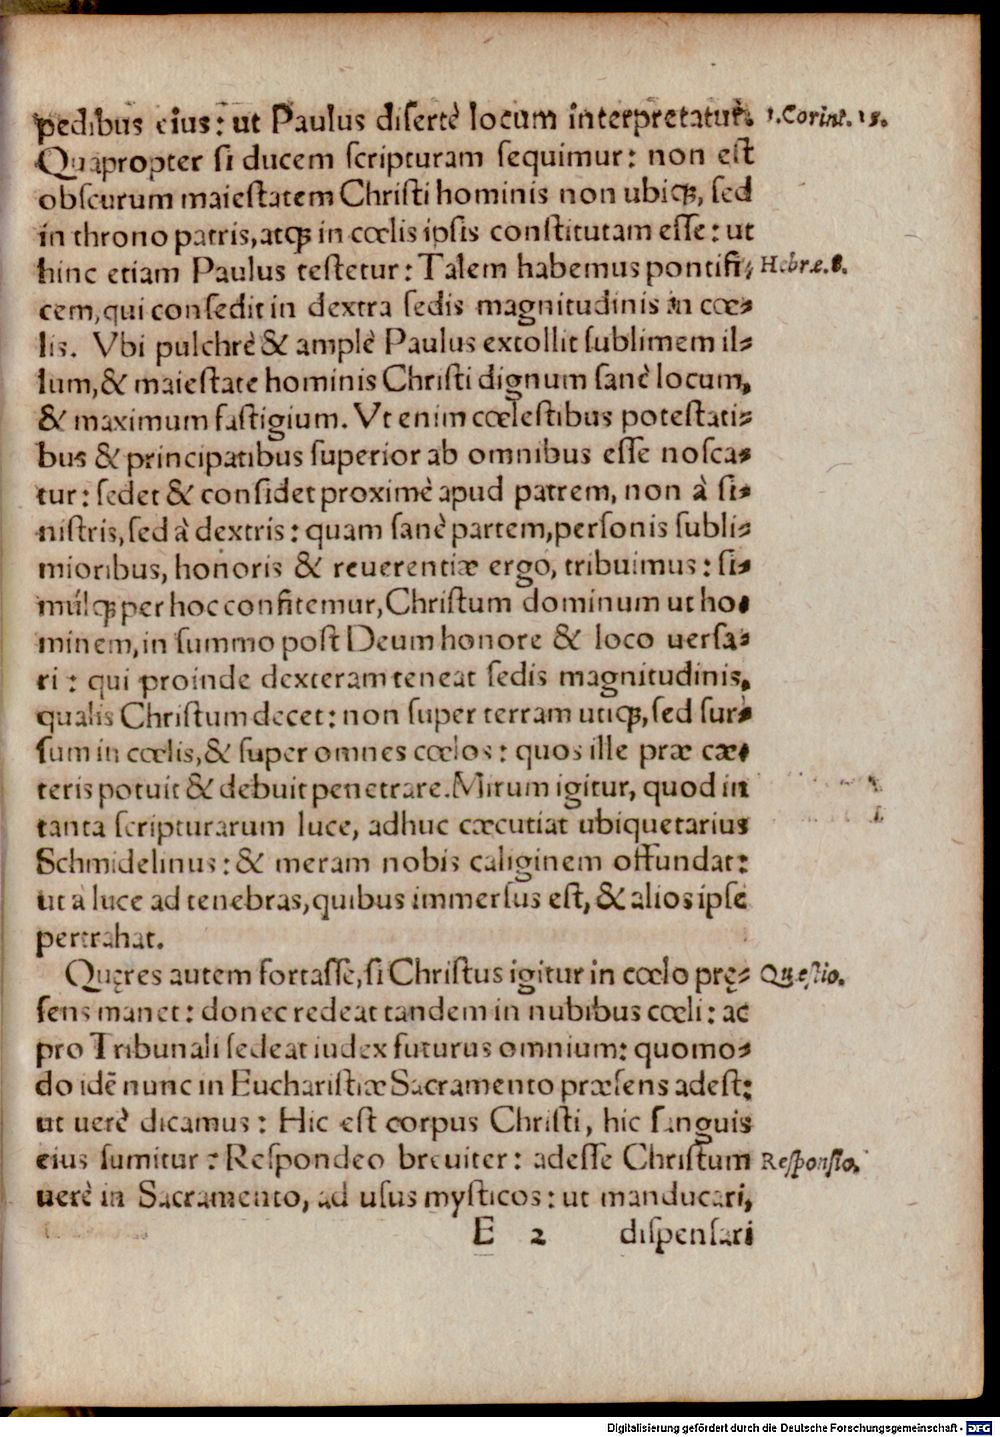 pedibus eius: ut Paulus disertè locum interpretatur. 1. Corint. 15.
Quapropter si ducem scripturam sequimur: non est
obscurum maiestatem Christi hominis non ubiqꝫ, sed
in throno patris, atqꝫ in cœlis ipsis constitutam esse: ut
hinc etiam Paulus testetur: Talem habemus pontifi- Hebræ. 8.
cem, qui consedit in dextra sedis magnitudinis in cœ-
lis. Vbi pulchrè & amplè Paulus extollit sublimem il-
lum, & maiestate hominis Christi dignum sanè locum,
& maximum fastigium. Vt enim cœlestibus potestati-
bus & principatibus superior ab omnibus esse nosca-
tur: sedet & considet proximè apud patrem, non à si-
nistris, sed à dextris: quam sanè partem, personis subli-
mioribus, honoris & reuerentiæ ergo, tribuimus: si-
mulqꝫ per hoc confitemur, Christum dominum ut ho-
minem, in summo post Deum honore & loco uersa-
ri: qui proinde dexteram teneat sedis magnitudinis,
qualis Christum decet: non super terram utiqꝫ, sed sur-
sum in cœlis, & super omnes cœlos: quos ille præ cæ-
teris potuit & debuit penetrare. Mirum igitur, quod in
tanta scripturarum luce, adhuc cæcutiat ubiquetarius
Schmidelinus: & meram nobis caliginem offundat:
ut à luce ad tenebras, quibus immersus est, & alios ipse
pertrahat.
Quęres autem fortasse, si Christus igitur in cœlo prę- Quæstio.
sens manet: donec redeat tandem in nubibus cœli: ac
pro Tribunali sedeat iudex futurus omnium: quomo-
do idẽ nunc in Eucharistiæ Sacramento præsens adest:
ut uerè dicamus: Hic est corpus Christi, hic sanguis
eius sumitur? Respondeo breuiter: adesse Christum Responsio.
uerè in Sacramento, ad usus mysticos: ut manducari,
E 2 dispensari
Digitalisierung gefördert durch die Deutsche Forschungsgemeinschaft - DFG